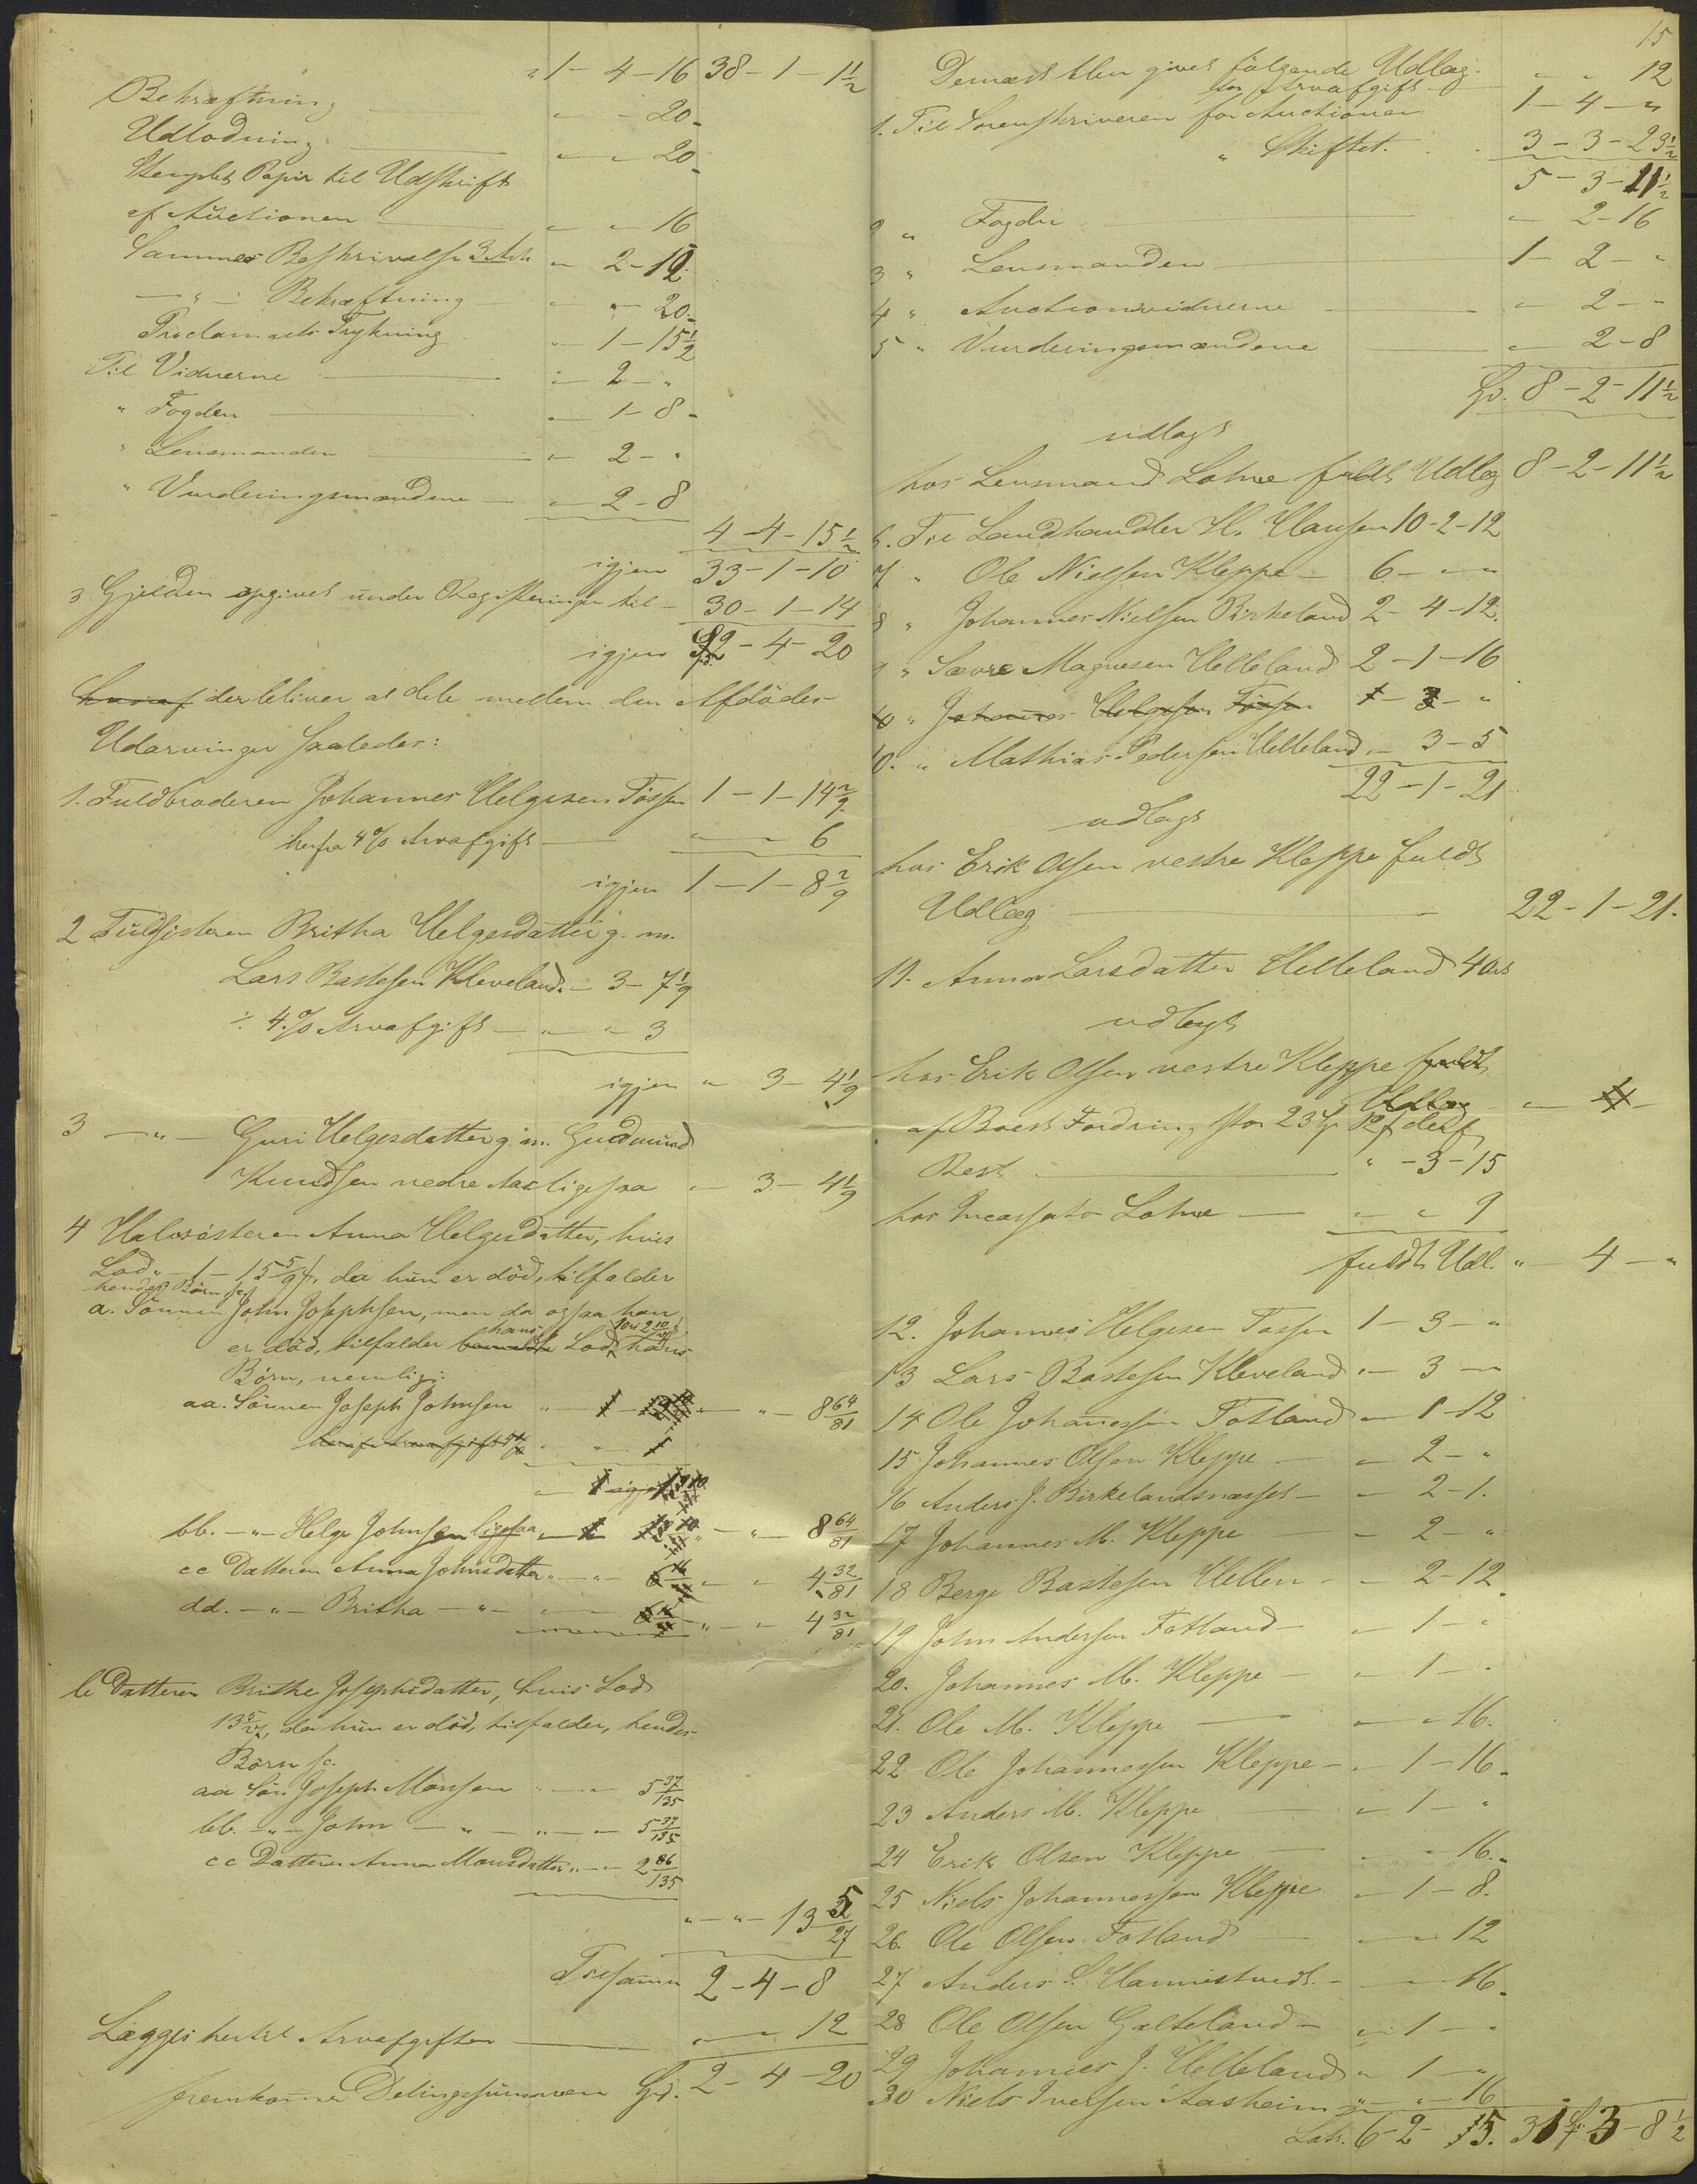 " 1 - 4 - 16 38 - 1 - 1 1/2
Bekræftning " - " 20 -
Udlodning " - " 20
Stemplet Papir til Udskrift
af Auctionen " - " 16
Sammes Beskrivelse 3 Ark " 2 - 12
- " - Bekræftning " - " 20 -
Proclamaets Trykning " 1 - 15 1/2
Til Vidnerne " 2 - "
" Fogden " 1 - 8 -
" Lensmanden " 2 - "
" Vurderingsmændene " 2 - 8
4 - 4 - 15 1/2
igjen 33 - 1 - 10
3 Gjelden opgivet under Registeringen til - 30 - 1 - 14
igjen 2 - 4 - 20
hvoraf der bliver at dele mellem den Afdödes
Udarvinger saaledes:
1. Fuldbroderen Johannes Helgesen Tössen 1 - 1 - 14 2/9
herfra 4 % Arvafgift " - " 6
igjen 1 - 1 - 8 2/9
2 Fuldsösteren Britha Helgesdatter g. m.
Lars Bastesen Kleveland " - 3 - 7 1/9
÷ 4 % Arvafgift - " - " 3
igjen " 3 - 4 1/9
3 - " - Guri Helgesdatter g. m. Gudmund
Knudsen nedre Aas ligesaa " 3 - 4 1/9
4 Halvsösteren Anna Helgesdatter, hvis
Lod " - 1 - 15 5/9 , da hun er död, tilfalder
hendes Börn
a. Sönnen John Josephsen, men da ogsaa han
er död, tilfalder hans Lod hans
Börn, nemlig:
aa. Sönnen Joseph Johnsen " - " - 8 64/81
bb. - " - Helge Johnsen ligesaa " - " - 8 64/81
cc Datteren Anna Johnsdatter " - " 4 32/81
dd. - " - Britha - " - " - " 4 32/81
b Datteren Brithe Josephsdatter, hvis Lod
13 5/27, da hun er död, tilfalder, hendes
Börn sc.
aa Sön Joseph Monsen " - " 5 37/135
bb. - " - John - " - " - " 5 37/135
cc Datteren Anna Monsdatter " - " 2 86/135
" - " - 13 5/27
Tilsammen 2 - 4 - 8
Lægges hertil Arvafgiften " - " 12
fremkommer Delingssummen 2 - 4 - 20
15
Dernæst blev givet fölgende Udlæg.
for Arvafgift " " 12
1. Til Sorenskriveren for Auctionen 1 - 4 - "
" Skiftet. 3 - 3 - 23 1/2
5 - 3 - 11 1/2
2 " Fogden " 2 - 16
3 " Lensmanden 1 - 2 - "
4 " Auctionsvidnerne " 2 - "
5 " Vurderingsmændene " 2 - 8
8 - 2 - 11 1/2
udlagt
hos Lensmand Lohne fuldt Udlæg 8 - 2 - 11 1/2
6. Til Landhandler H. Clausen 10 - 2 - 12
7 " Ole Nielsen Kleppe - 6 - " - "
8 " Johannes Nielsen Birkeland 2 - 4 - 12.
9 " Sævre Magnesen Helleland 2 - 1 - 16
10 " Johannes Helgesen Tössen 1 - 3 - "
10. " Mathias Pedersen Helleland " 3 - 5
22 - 1 - 21
udlagt
hos Erik Olsen vestre Kleppe fuldt
Udlæg 22 - 1 - 21.
11. Anna Larsdatter Helleland 4 Ort
udlagt
hos Erik Olsen vestre Kleppe fuldt
Udlæg
af Boets Fordring stor 23
Rest " - 3 - 15
hos Incassator Lohne " " 9
fuldt Udl. " 4 - "
12. Johannes Helgesen Tossen 1 - 3 - "
13 Lars Bastesen Kleveland " 3 - "
14 Ole Johannessen Fotland " 1 - 12
15 Johannes Olsen Kleppe " 2 - "
16 Anders J. Birkelandsnæsset " 2 - 1.
17 Johannes M. Kleppe - 2 - "
18 Berge Bastesen Hellen - " 2 - 12
19 John Andersen Fotland " 1 - "
20. Johannes M. Kleppe " 1 - "
21. Ole M. Kleppe " " 16.
22 Ole Johannessen Kleppe " 1 - 16.
23 Anders M. Kleppe " 1 - "
24 Erik Olsen Kleppe " " 16.
25 Niels Johannessen Kleppe " 1 - 8.
26. Ole Olsen Fotland " " 12
27 Anders " " 16.
28 Ole Olsen Galteland " 1 - "
29 Johannes J. Helleland " 1 - "
30 Niels Iversen Aasheim " " 16
Lats. 6 - 2 - 15. 31 - 3 - 8 1/2